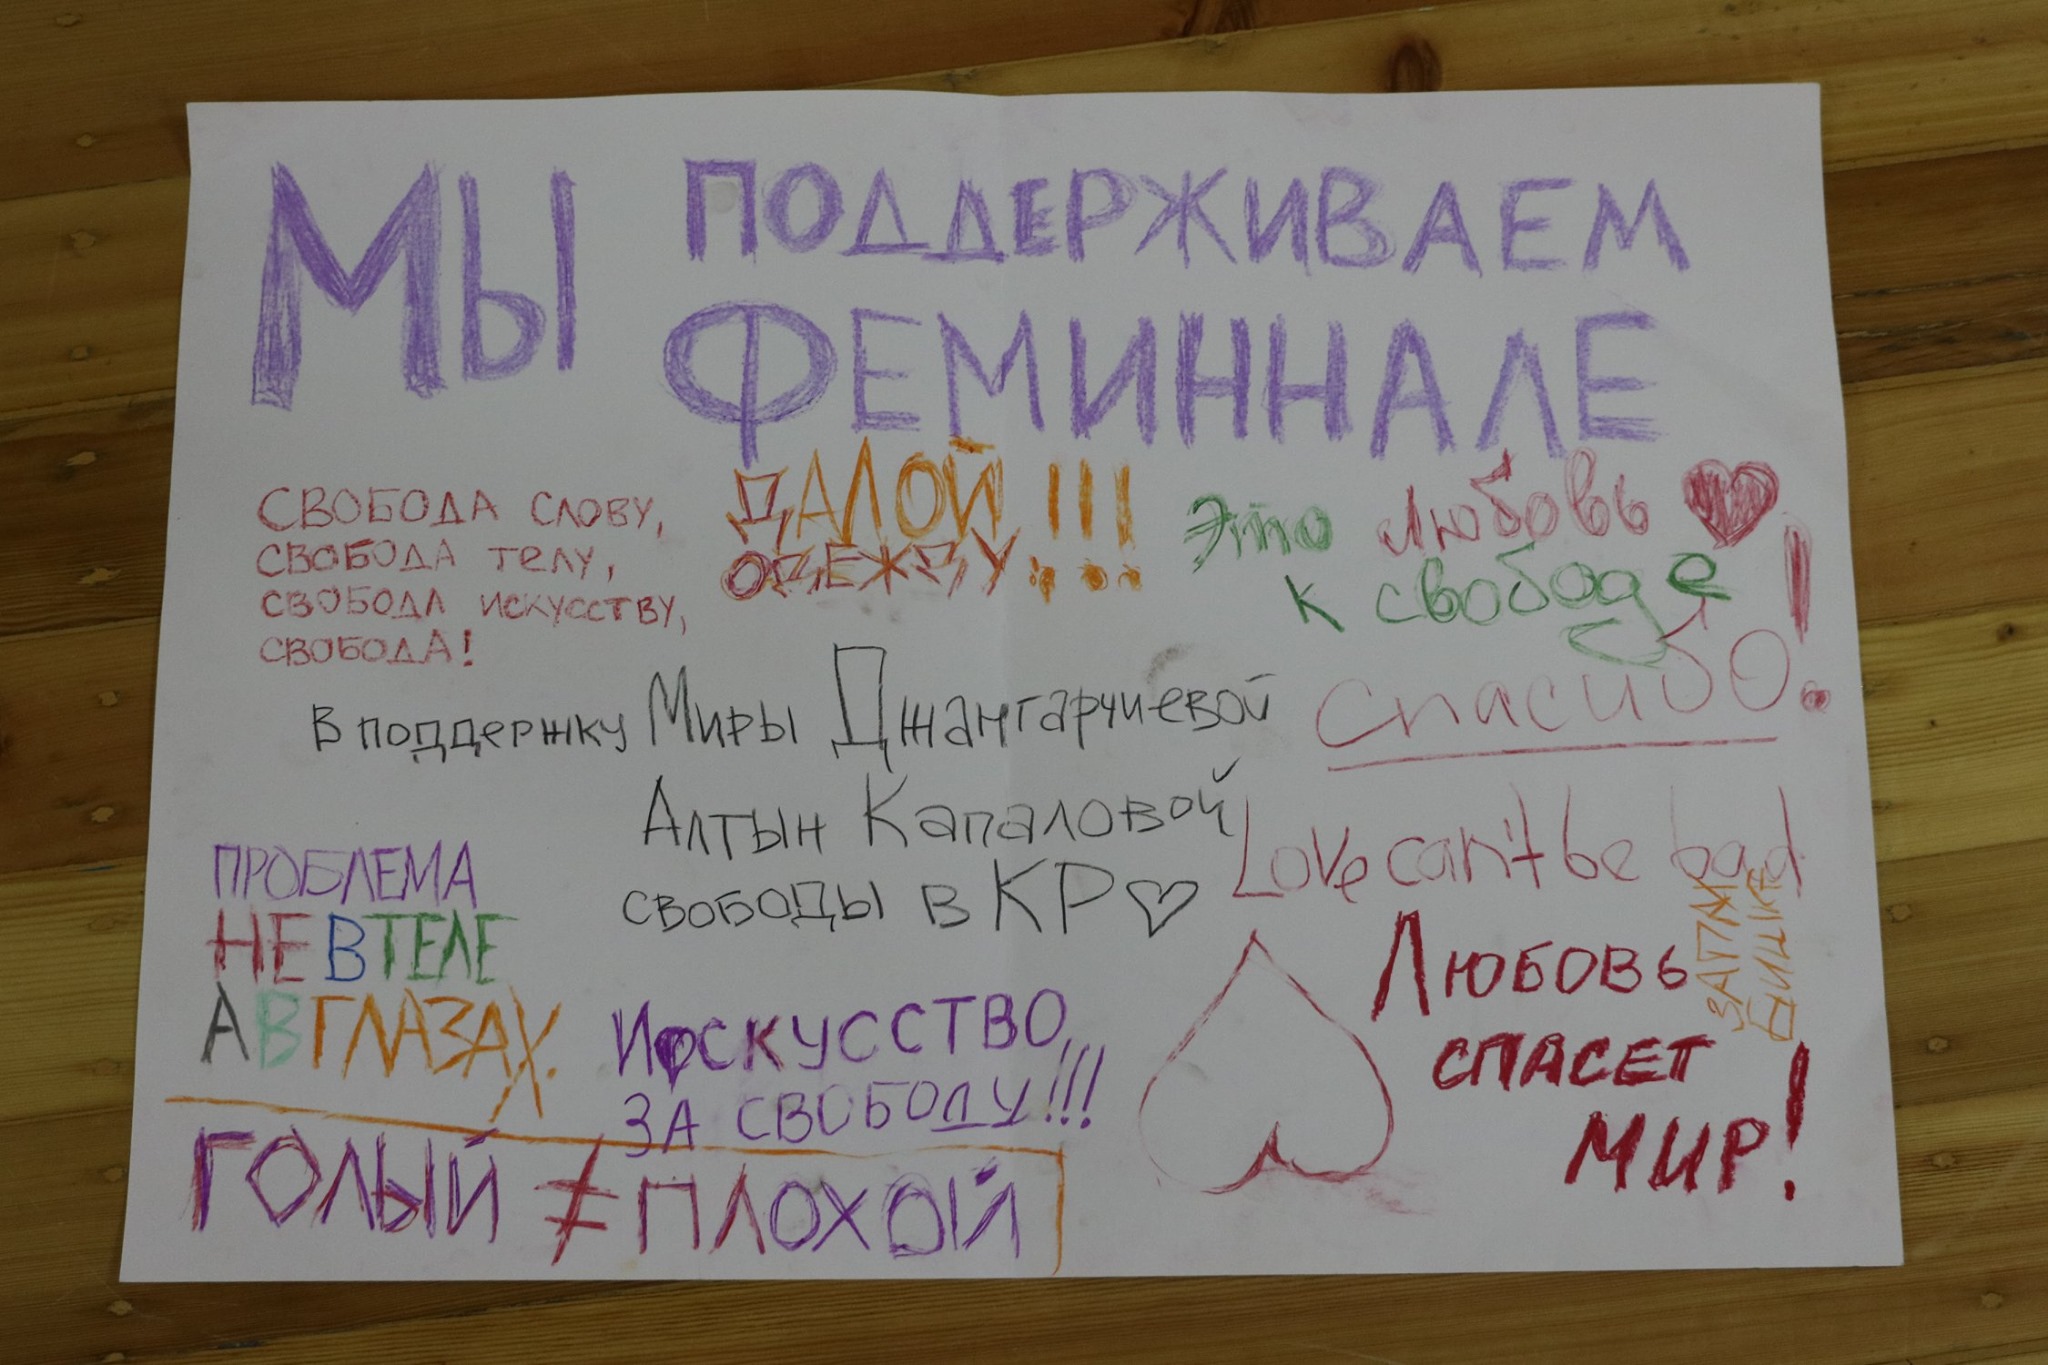 МЫ ПОДДЕРЖИВАЕМ
ФЕМИННАЛЕ
СВОБОДА СЛОВУ,
СВОБОДА ТЕЛУ,
СВОБОДА ИСКУССТВУ,
СВОБОДА!
ДАЛОЙ!!!
ОДЕЖДУ...
Это любовь
к свободе!
Спасибо.
В поддержку Миры Джангарчиевой
Алтын Капаловой
свободы в КР
Love can't be bad
ПРОБЛЕМА
НЕ В ТЕЛЕ
А В ГЛАЗАХ.
ИСКУССТВО
ЗА СВОБОДУ!!!
ЛЮБОВЬ
СПАСЕТ
МИР!
ГОЛЫЙ ≠ ПЛОХОЙ